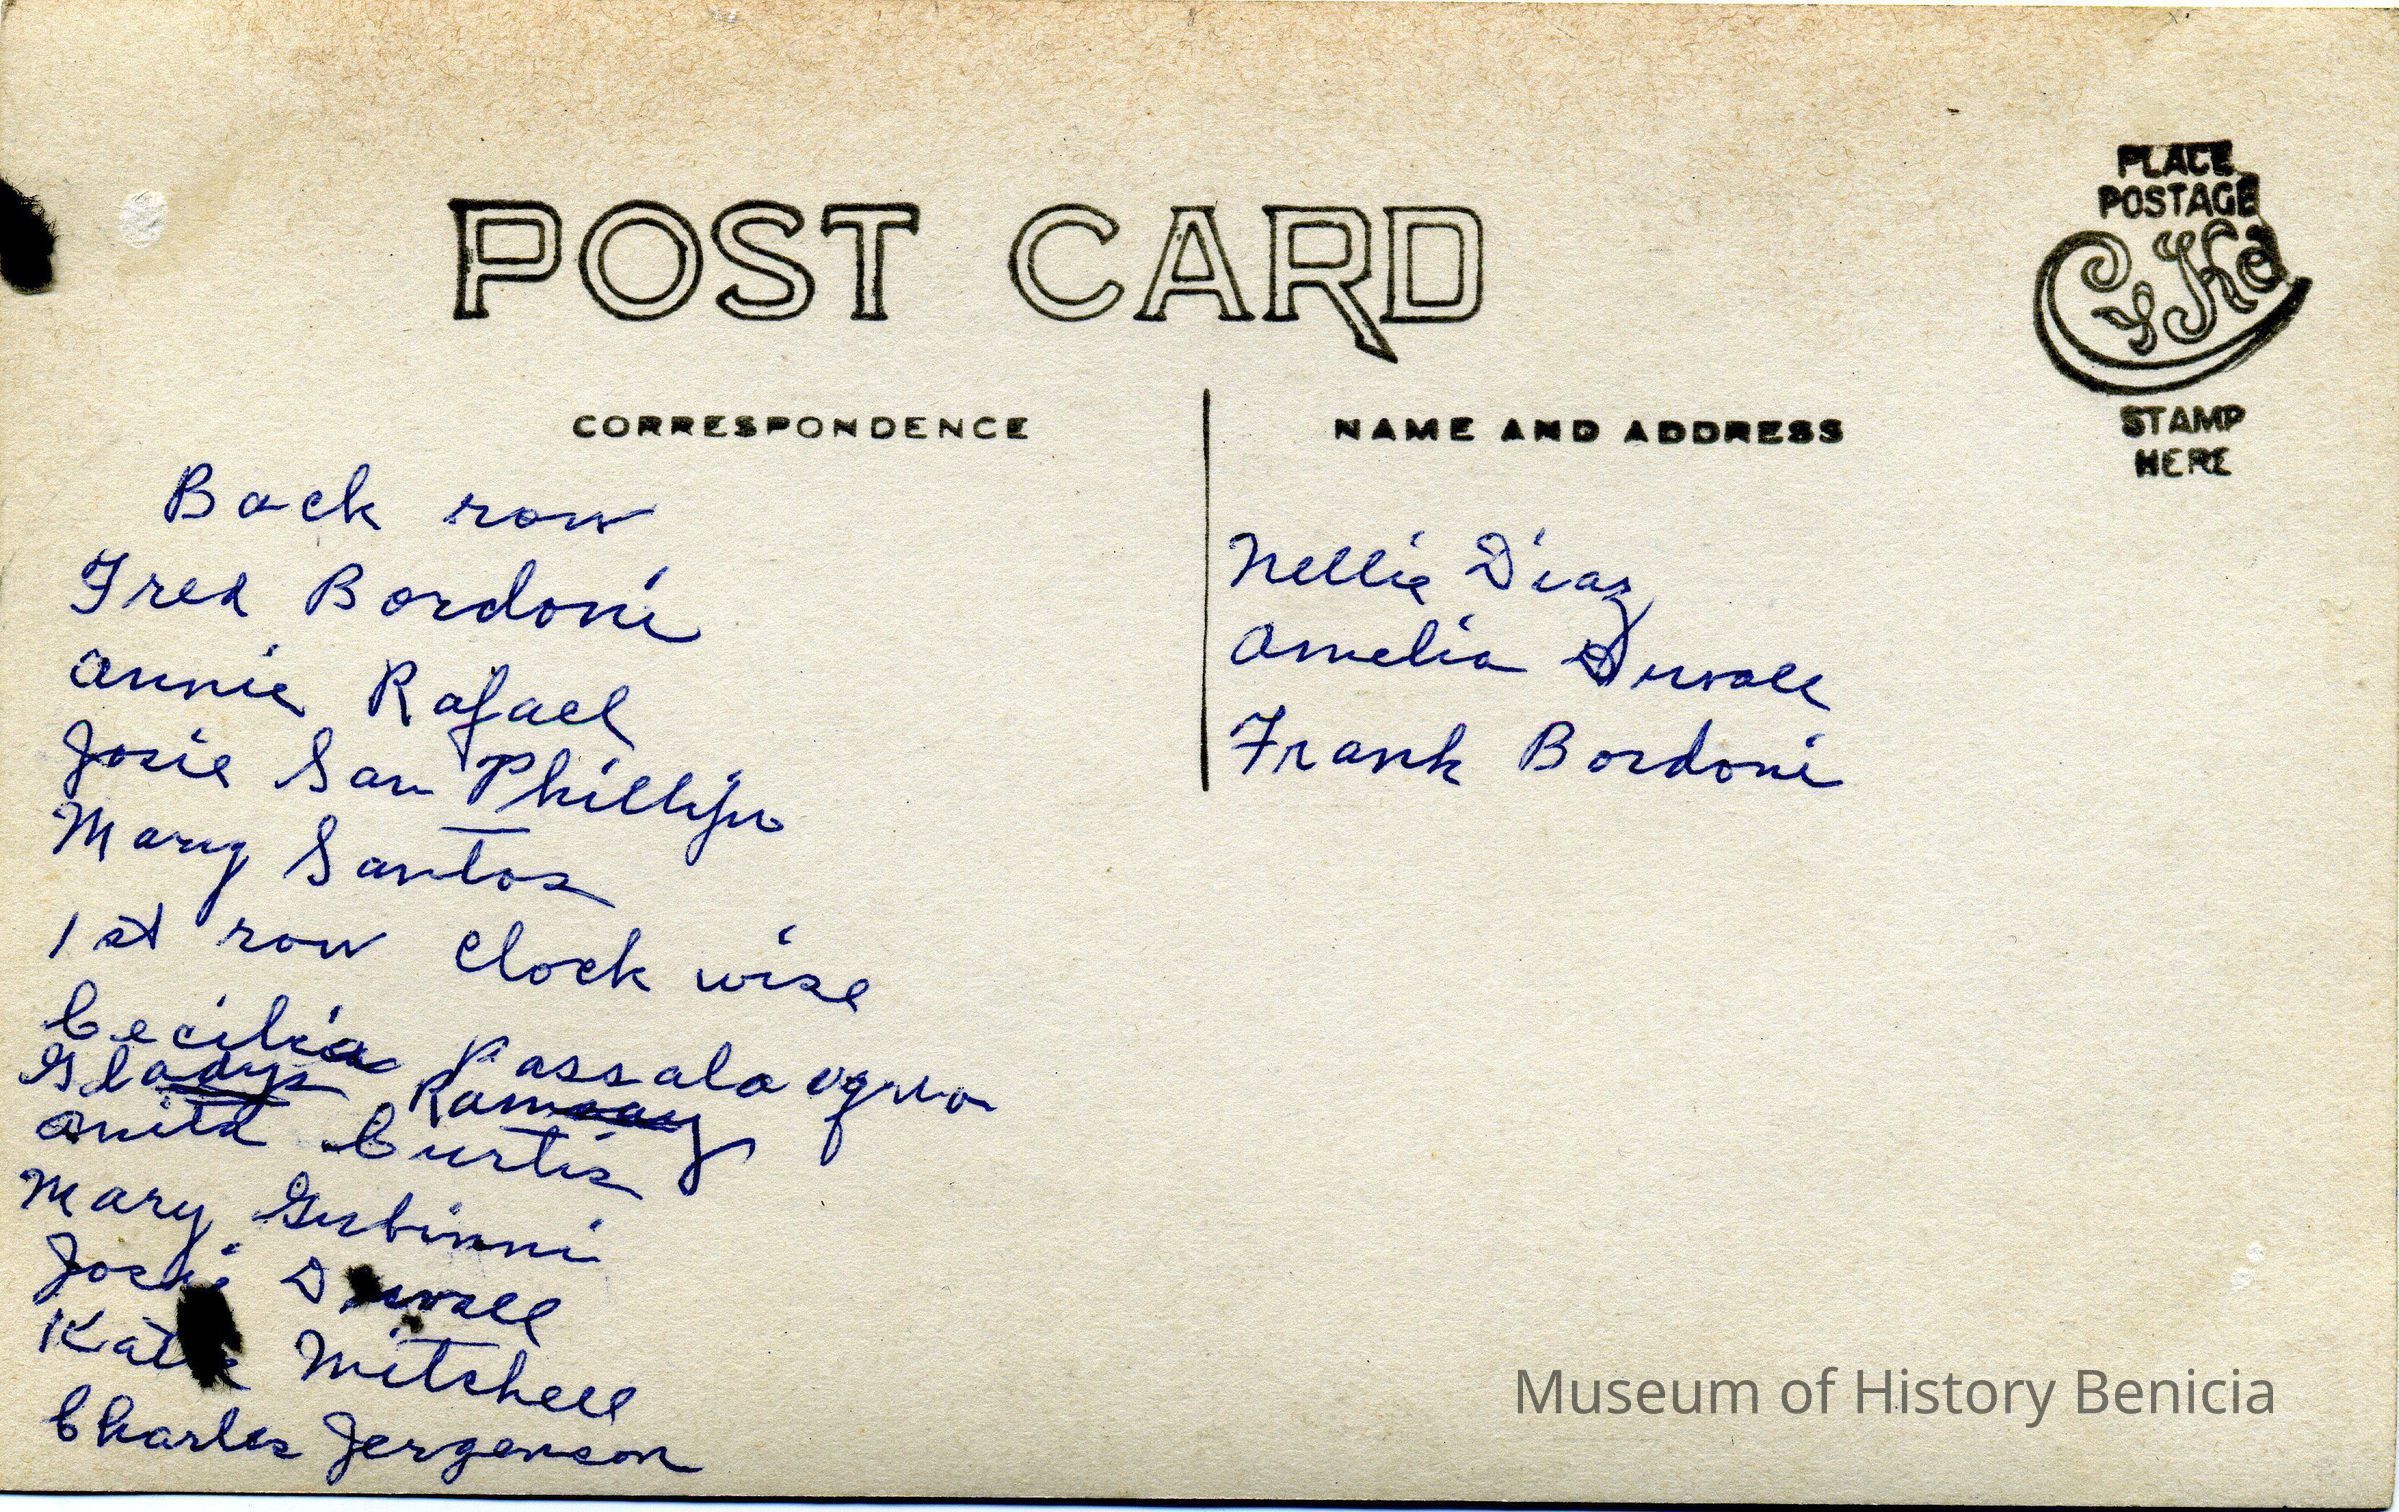 PLACE
POSTAGE
CyKo
POST CARD
STAMP
HERE
CORRESPONDENCE
NAME AND ADDRESS
Back row
Fred Bordoni
Annie Rafael
Josie San Phillips
Mary Santos
1st row Clock wise
Cecilia Passalaqua
Gladys Ramsay
Anita Curtis
Mary Gubinni
Josie Duvall
Katie Mitchell
Charles Jergenson
Nellie Diaz
Amelia Duvall
Frank Bordoni
Museum of History Benicia